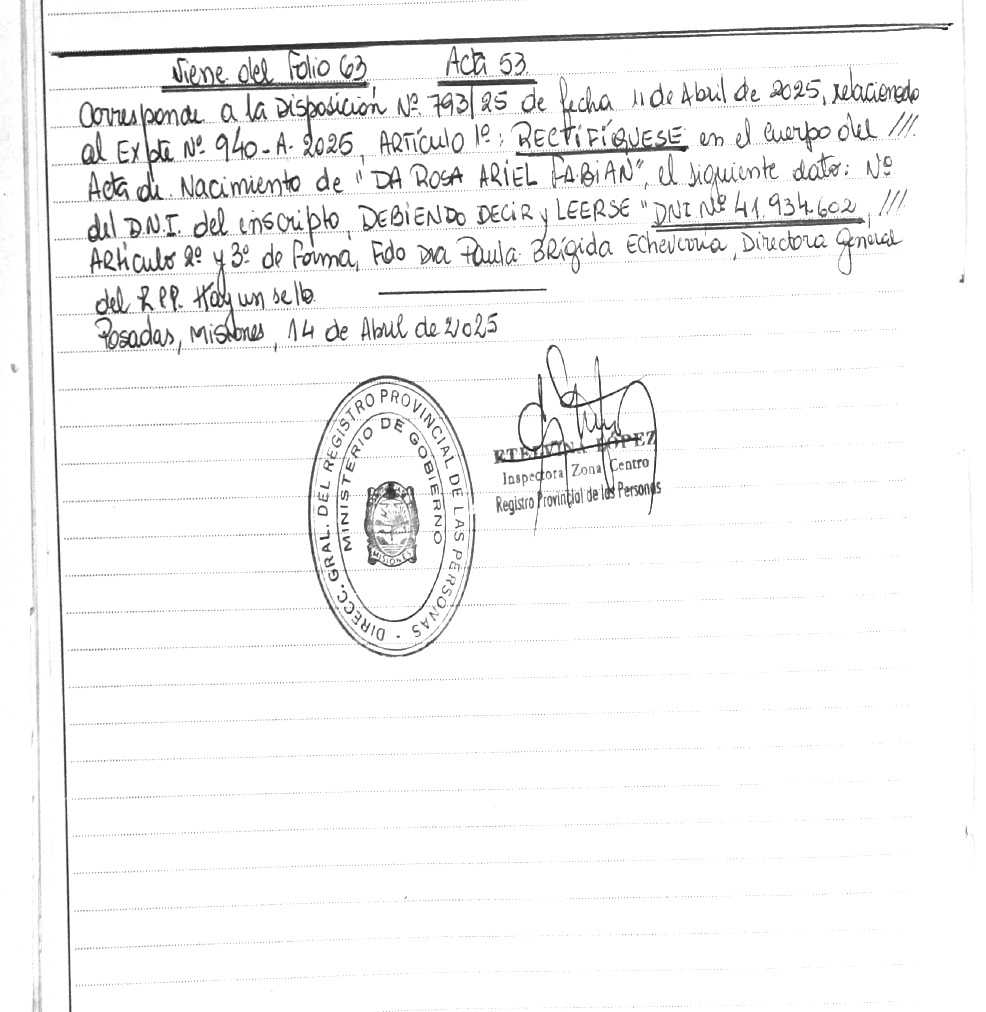 Viene del Folio 63 Acta 53
Corresponde a la Disposición Nº 793/25 de fecha 11 de Abril de 2025, relacionado
al Expte Nº 940-A-2025, ARTÍCULO 1º: RECTIFÍQUESE en el cuerpo del ///
Acta de Nacimiento de "DA ROSA ARIEL FABIAN", el siguiente dato: Nº
del D.N.I. del inscripto, DEBIENDO DECIR y LEERSE "DNI Nº 41.934.602, ///
Artículo 2º y 3º de forma, Fdo Dra Paula Brígida Echeverria, Directora General
del R.P.P. Hay un sello.
Posadas, Misiones, 14 de Abril de 2025
DIRECC. GRAL. DEL REGISTRO PROVINCIAL DE LAS PERSONAS -
MINISTERIO DE GOBIERNO
MISIONES
ETELVINA LÓPEZ
Inspectora Zona Centro
Registro Provincial de las Personas